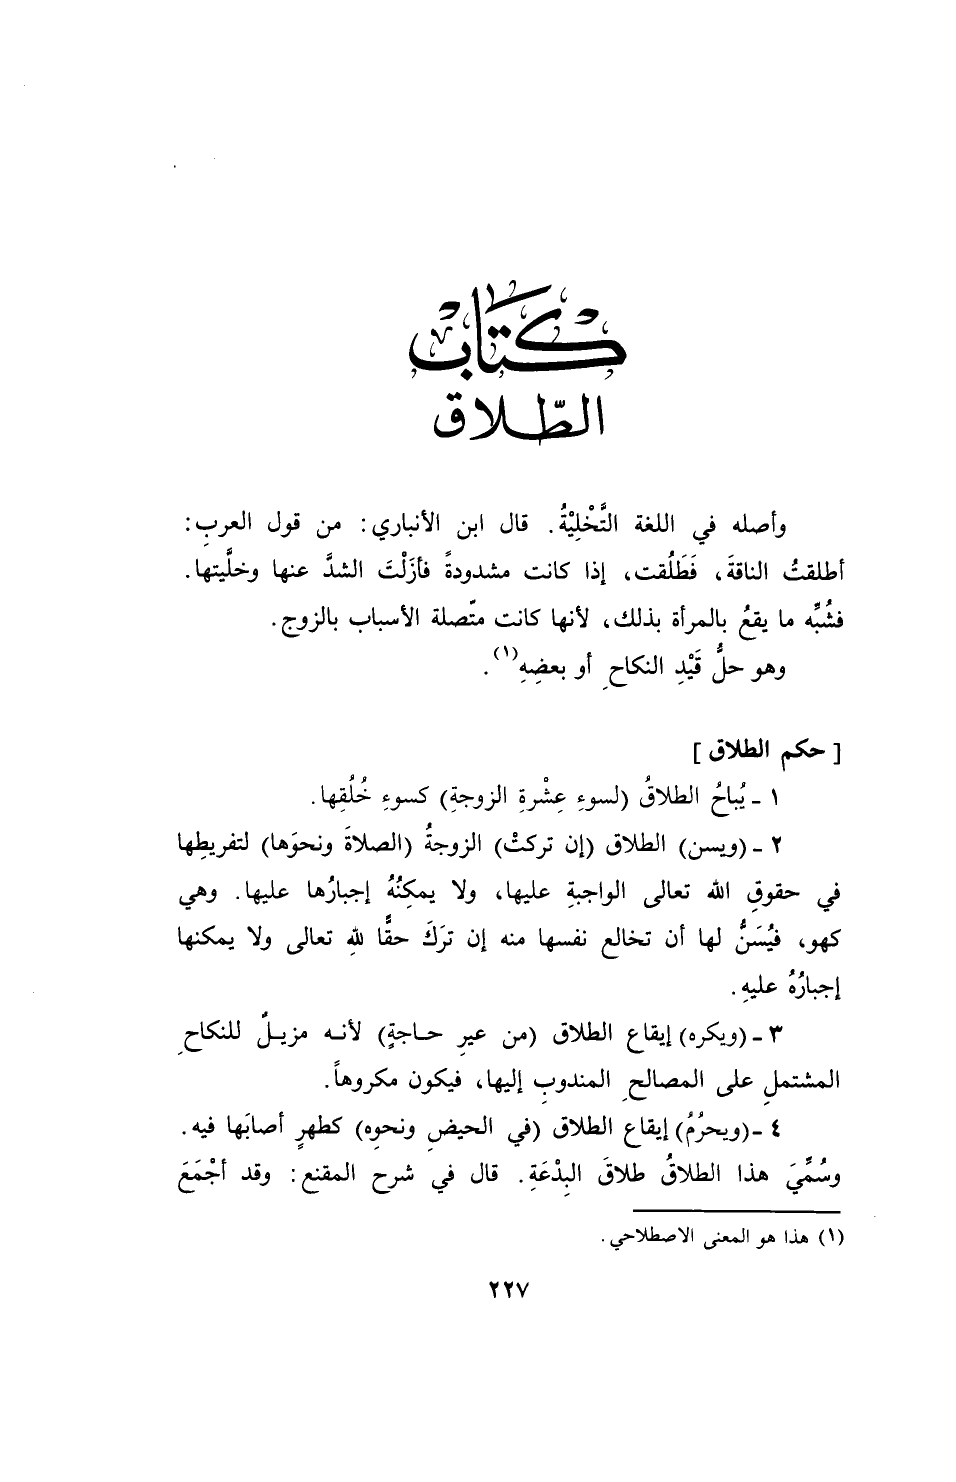 كتاب
الطّلاق
وأصله في اللغة التَّخْلِيْةُ. قال ابن الأنباري: من قول العربِ:
أطلقتُ الناقةَ، فَطَلُقت، إذا كانت مشدودةً فأزَلْتَ الشدَّ عنها وخلَّيتها.
فشُبِّه ما يقعُ بالمرأة بذلك، لأنها كانت متّصلة الأسباب بالزوج.
وهو حلُّ قَيْدِ النكاحِ أو بعضِهِ(١).
[ حكم الطلاق ]
١ ـ يُباحُ الطلاقُ (لسوءِ عِشْرةِ الزوجةِ) كسوءِ خُلُقِها.
٢ ـ (ويسن) الطلاق (إن تركتْ) الزوجةُ (الصلاةَ ونحوَها) لتفريطِها
في حقوقِ الله تعالى الواجبةِ عليها، ولا يمكِنُهُ إجبارُها عليها. وهي
كهو، فيُسَنُّ لها أن تخالع نفسها منه إن تركَ حقًّا للهِ تعالى ولا يمكنها
إجبارُهُ عليهِ.
٣ ـ (ويكره) إيقاع الطلاق (من عيرِ حـاجةٍ) لأنـه مزيـلٌ للنكاحِ
المشتملِ على المصالحِ المندوبِ إليها، فيكون مكروهاً.
٤ ـ (ويحرُمُ) إيقاع الطلاق (في الحيضِ ونحوِه) كطهرٍ أصابَها فيه.
وسُمِّيَ هذا الطلاقُ طلاقَ البِدْعَةِ. قال في شرح المقنع: وقد أجْمَعَ
(١) هذا هو المعنى الاصطلاحي.
٢٢٧